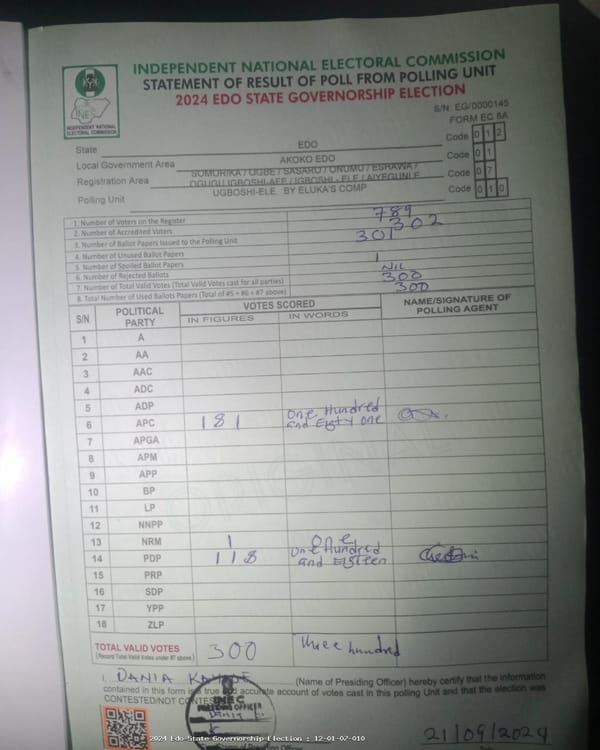 INDEPENDENT NATIONAL ELECTORAL COMMISSION
STATEMENT OF RESULT OF POLL FROM POLLING UNIT
2024 EDO STATE GOVERNORSHIP ELECTION
INEC
INDEPENDENT NATIONAL
ELECTORAL COMMISSION
S/N: EG/0000145
FORM EC 8A
State EDO Code 0 1 2
Local Government Area AKOKO EDO Code 0 1
Registration Area SOMORIKA / OGBE / SASARO / ONUMU / ESHAWA / OGUGU IGBOSHI-AFE / IGBOSHI - ELE / AIYEGUNLE Code 0 7
Polling Unit UGBOSHI-ELE. BY ELUKA'S COMP Code 0 1 0
1. Number of Voters on the Register 789
2. Number of Accredited Voters 302
3. Number of Ballot Papers Issued to the Polling Unit 301
4. Number of Unused Ballot Papers
5. Number of Spoiled Ballot Papers 1
6. Number of Rejected Ballots NIL
7. Number of Total Valid Votes (Total Valid Votes cast for all parties) 300
8. Total Number of Used Ballots Papers (Total of #5 + #6 + #7 above) 300
S/N POLITICAL PARTY VOTES SCORED NAME/SIGNATURE OF POLLING AGENT
IN FIGURES IN WORDS
1 A
2 AA
3 AAC
4 ADC
5 ADP
6 APC 181 One Hundred and Eigty one
7 APGA
8 APM
9 APP
10 BP
11 LP
12 NNPP
13 NRM 1 One
14 PDP 118 One Hundred and Eigteen
15 PRP
16 SDP
17 YPP
18 ZLP
TOTAL VALID VOTES 300 Three hundred
(Record Total Valid Votes under #7 above)
I, DANIA (Name of Presiding Officer) hereby certify that the information
contained in this form is a true and accurate account of votes cast in this polling Unit and that the election was
CONTESTED/NOT CONTESTED
INEC
PRESIDING OFFICER
21/09/2024
2024 Edo State Governorship Election : 12-01-07-010